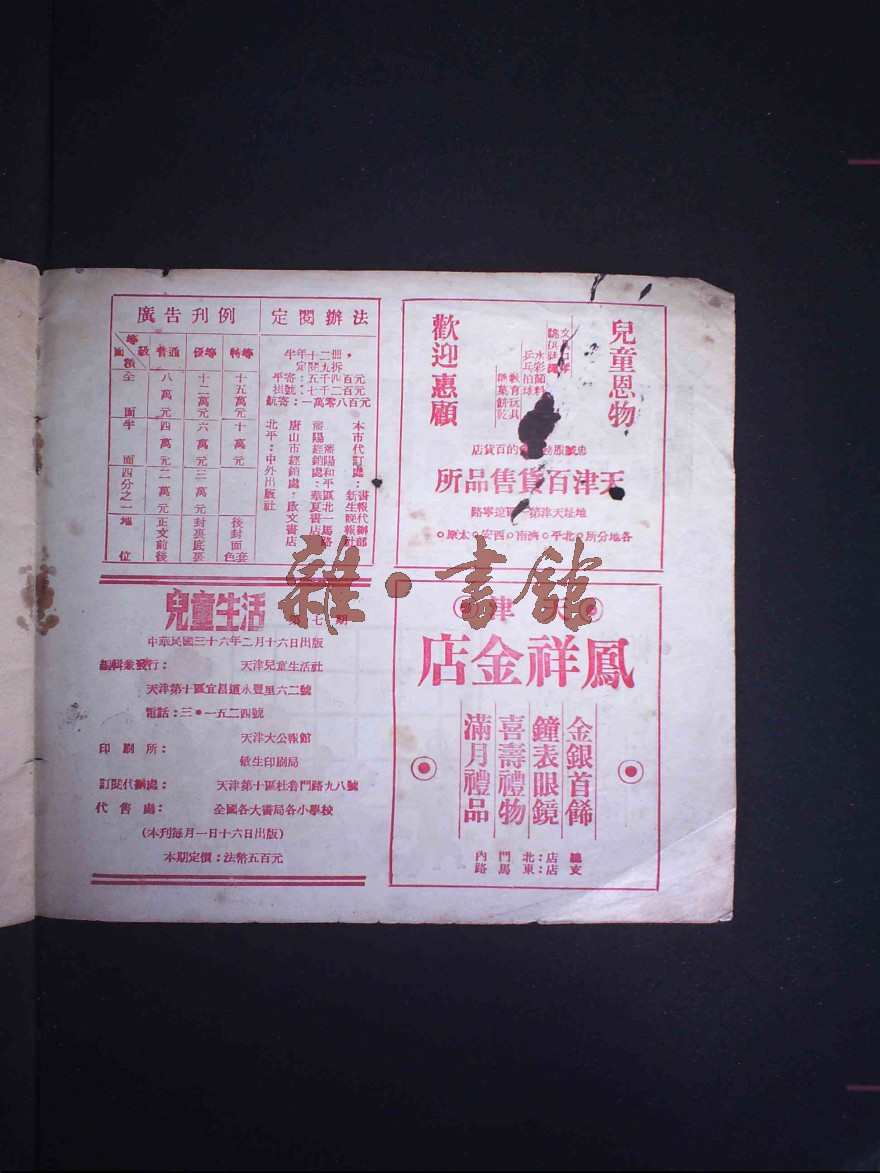 廣告刊例
等級
面積
普通
優等
特等
全面
八萬元
十二萬元
十五萬元
半面
四萬元
六萬元
十萬元
四分之一
二萬元
三萬元
地位
正文前後
封裏底裏
後封面色套
定閱辦法
半年十二冊,
定閱九折
平寄:五千四百元
掛號:七千二百元
航寄:一萬零八百元
本市代訂處:
書報代辦部
新生晚報社
瀋陽經銷處:
瀋陽和平區北一馬路
唐山市經銷處:
華夏書店
啟文書店
北平:中外出版社
兒童生活
第七期
中華民國三十六年二月十六日出版
編輯兼發行: 天津兒童生活社
天津第十區宜昌道永豐里六二號
電話:三·一五二四號
印刷所: 天津大公報館
敏生印刷局
訂閱代辦處: 天津第十區杜魯門路九八號
代售處: 全國各大書局各小學校
(本刊每月一日十六日出版)
本期定價:法幣五百元
兒童恩物
水彩顏料
乒乓拍球
教育玩具
糖菓餅乾
歡迎惠顧
的百貨店
天津百貨售品所
地址天津第一區遼寧路
各地分所 北平 濟南 西安 太原
天津
鳳祥金店
金銀首飾
鐘表眼鏡
喜壽禮物
滿月禮品
總店:北門內
支店:東馬路
雜·書館